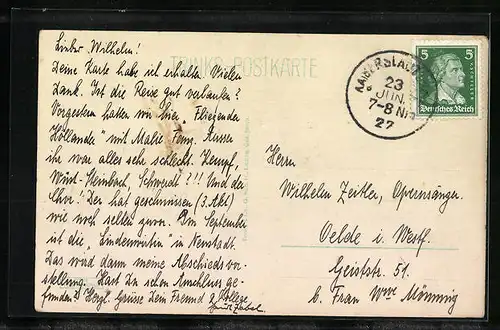 Lieber Wilhelm!
Deine Karte habe ich erhalten. Vielen
Dank. Ist die Reise gut verlaufen?
Vorgestern hatten wir hier „Fliegender
Holländer" mit Malie Fanz. Ausser
ihr war alles sehr schlecht. Kempf,
Wüst-Steinbach, Schwerdt"?!! Und der
Chor! Der hat geschmissen (3. Akt)
wie noch selten zuvor. Im September
ist die „Lindenwirtin" in Neustadt.
Das wird dann meine Abschiedsvor-
stellung. Hast Du schon Anschluss ge-
funden? Herzl. Grüsse Dein Freund u. Kollege
TRINKS-POSTKARTE
KAISERSLAUTERN
23
JUN.
7-8 NM
27
5 5
Deutsches Reich
Herrn
Wilhelm Zeitler, Opernsänger
Oelde i. Westf.
Geiststr. 51.
b. Frau Wwe Mönning